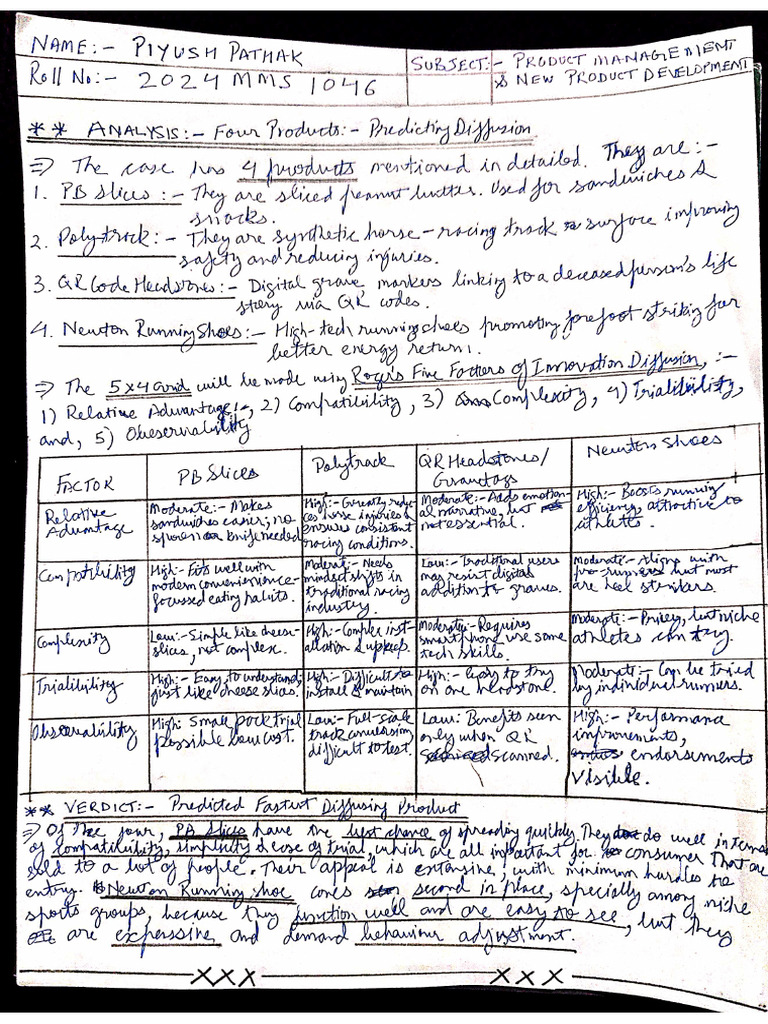 NAME:- PIYUSH PATHAK
SUBJECT:- PRODUCT MANAGEMENT
Roll No:- 2024 MMS 1046
& NEW PRODUCT DEVELOPMENT
** ANALYSIS:- Four Products:- Predicting Diffusion
⇒ The case has 4 products mentioned in detailed. They are:-
1. PB Slices:- They are sliced peanut butter. Used for sandwiches &
snacks.
2. Polytrack:- They are synthetic horse-racing track surface improving
safety and reducing injuries.
3. QR Code Headstones:- Digital grave markers linking to a deceased person's life
story via QR codes.
4. Newton Running Shoes:- High-tech running shoes promoting forefoot striking for
better energy return.
⇒ The 5x4 grid will be made using Roger's Five Factors of Innovation Diffusion, :-
1) Relative Advantage, 2) Compatibility, 3) Complexity, 4) Trialibility,
and, 5) Observability
FACTOR
PB Slices
Polytrack
QR Headstones/
Gravetags
Newton Shoes
Relative
Advantage
Moderate:- Makes
sandwiches easier; no
spoon or knife needed
High:- Greatly redu-
ces horse injuries &
ensures consistent
racing conditions.
Moderate:- Adds emotion-
al narrative, but
not essential.
High:- Boosts running
efficiency, attractive to
athletes.
Compatibility
High:- Fits well with
modern convenience-
focussed eating habits.
Moderate:- Needs
mindset shifts in
traditional racing
industry.
Low:- Traditional users
may resist digital
addition to graves.
Moderate:- Aligns with
pro-runners but most
are heel strikers.
Complexity
Low:- Simple like cheese-
slices, not complex.
High:- Complex inst-
allation & upkeep.
Moderate:- Requires
smartphone use some
tech skills.
Moderate:- Pricey, but niche
athletes can try.
Trialibility
High:- Easy to understand;
just like cheese slices.
High:- Difficult to
install & maintain
High:- Easy to try
on one headstone.
Moderate:- Can be tried
by individual runners.
Observability
High: Small pack trial
possible low cost.
Low:- Full-scale
track conversion
difficult to test.
Low: Benefits seen
only when QR
scanned.
High:- Performance
improvements,
endorsements
visible.
** VERDICT:- Predicted Fastest Diffusing Product
⇒ Of the four, PB Slices have the best chance of spreading quickly. They do well in terms
of compatibility, simplicity & ease of trial, which are all important for consumer that are
sold to a lot of people. Their appeal is extensive, with minimum hurdles to
entry. Newton Running shoe comes second in place, specially among niche
sports groups, because they function well and are easy to see, but they
are expenssive and demand behaviour adjustment.
xxx xxx